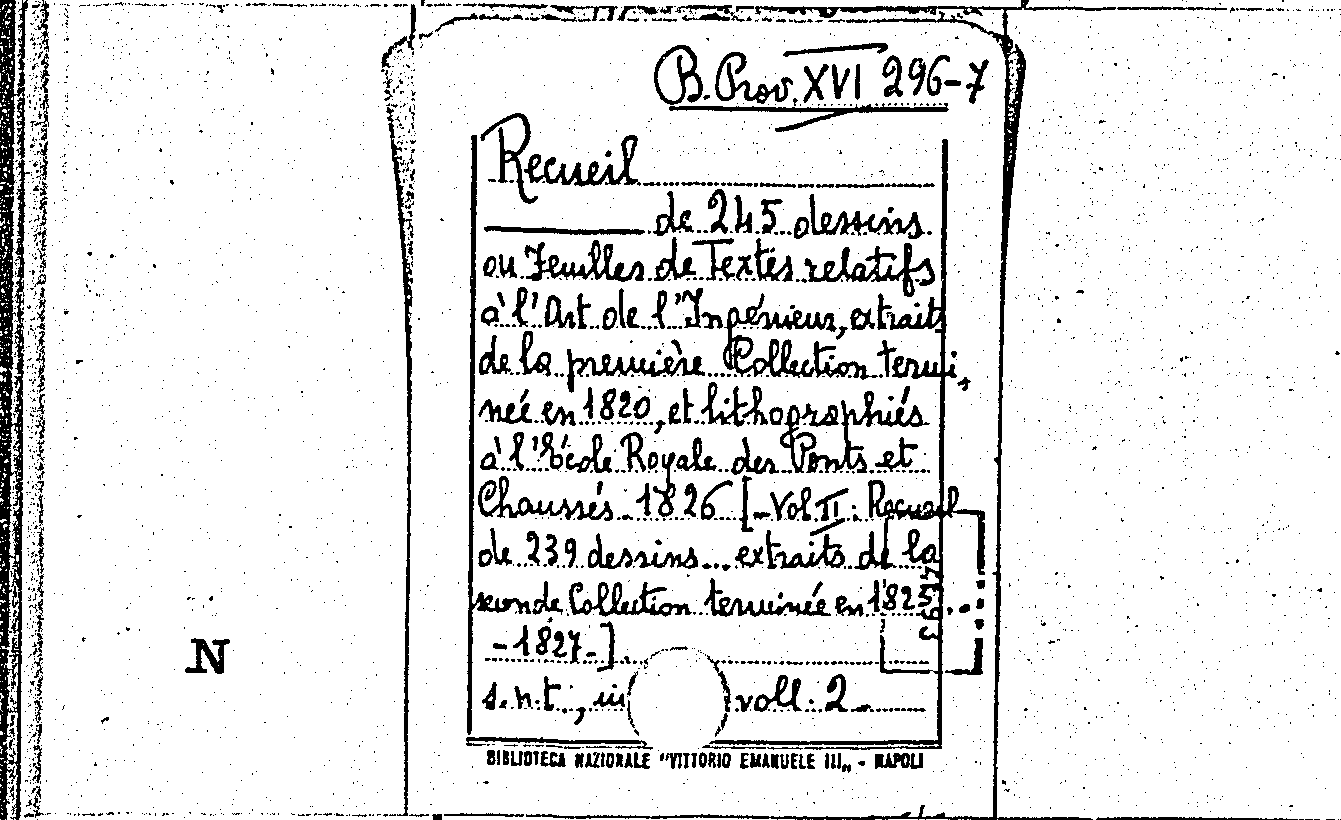 B. Prov. XVI 296-7
Recueil
de 245 dessins
ou Feuilles de Textes relatifs
à l'Art de l'Ingénieur, extraits
de la première Collection termi,
neé en 1820, et lithographiés
à l'École Royale des Ponts et
Chaussés 1826 [-Vol II: Recueil
de 239 dessins... extraits de la
seconde Collection terminée en 1825...
-1827-].
N
s.n.t., in voll. 2
BIBLIOTECA NAZIONALE "VITTORIO EMANUELE III„ - NAPOLI